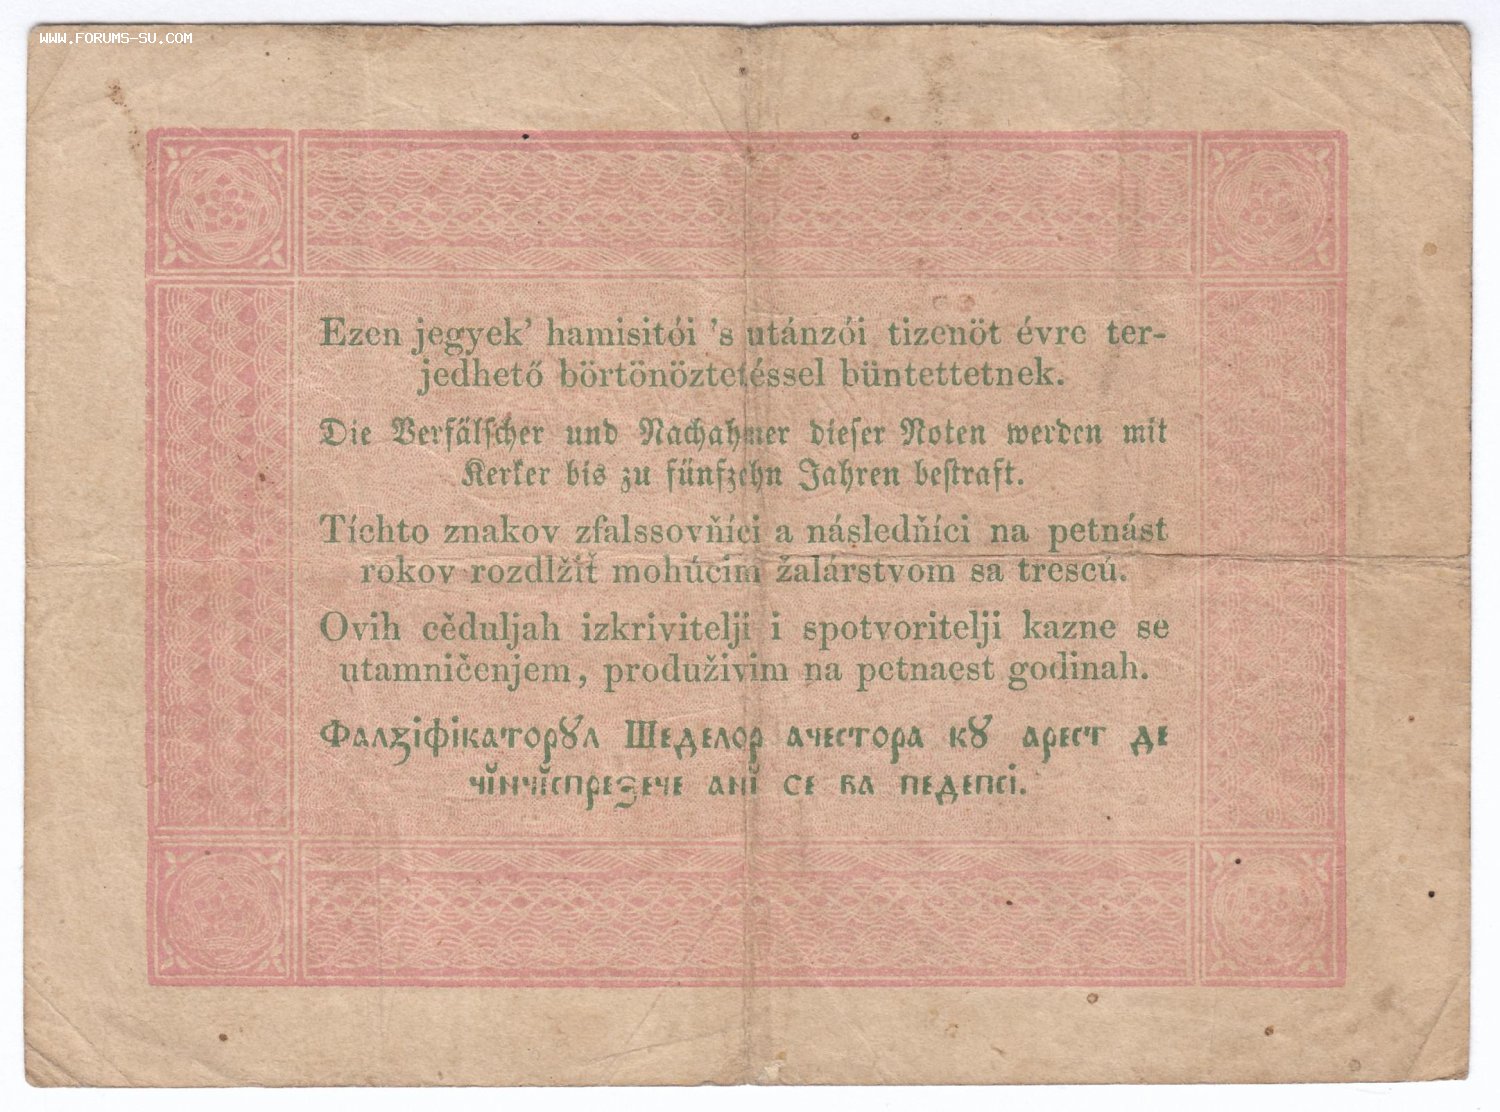 WWW.FORUMS-SU.COM
Ezen jegyek’ hamisitói ’s utánzói tizenöt évre ter-
jedhető börtönöztetéssel büntettetnek.
Die Verfälscher und Nachahmer dieser Noten werden mit
Kerker bis zu fünfzehn Jahren bestraft.
Tíchto znakov zfalssovňíci a následňíci na petnást
rokov rozdlžiť mohúcim žalárstvom sa trescú.
Ovih cěduljah izkrivitelji i spotvoritelji kazne se
utamničenjem, produživim na petnaest godinah.
Фалꙁіфікаторꙋл Шеделор ачестора кꙋ арест де
чĭнчĭспреꙁече анĭ се ва педепсі.